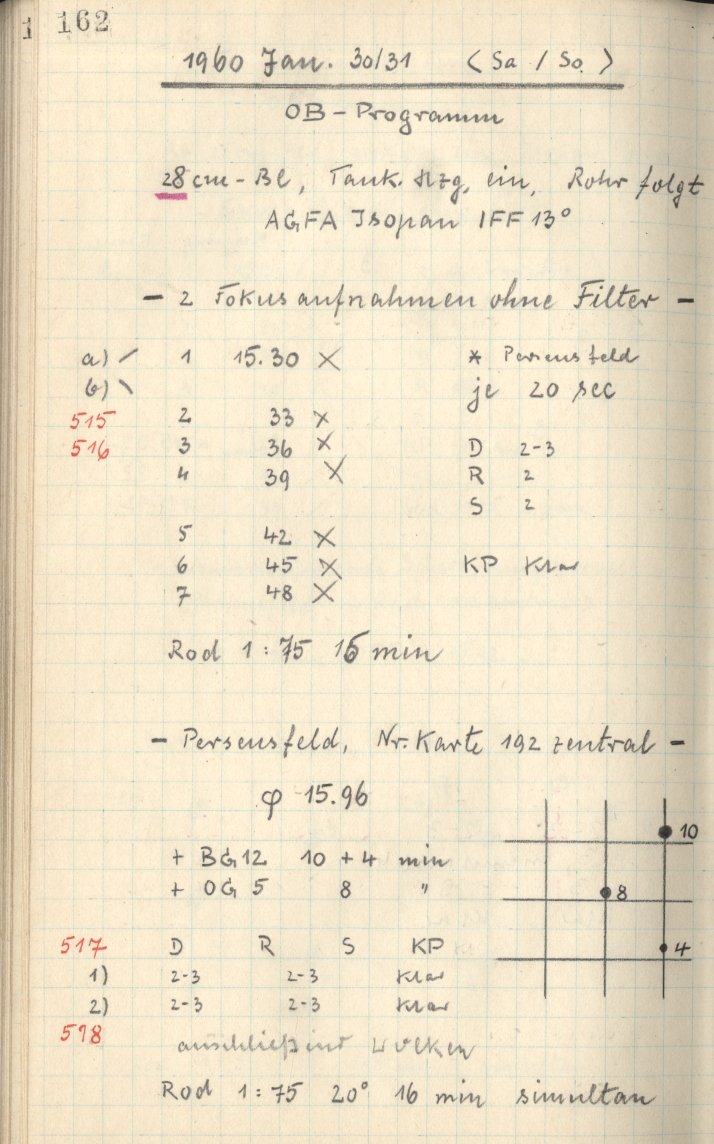 1 162
1960 Jan. 30/31 (Sa / So)
OB-Programm
28 cm-Bl, Tauk. Hzg, ein, Rohr folgt
AGFA Isopan IFF 13°
- 2 Fokusaufnahmen ohne Filter -
a) / 1 15.30 × * Perseusfeld
b) \ je 20 sec
515 2 33 ×
516 3 36 × D 2-3
4 39 × R 2
S 2
5 42 ×
6 45 × KP klar
7 48 ×
Rod 1:75 16 min
- Perseusfeld, Nr. Karte 192 zentral -
φ 15.96
10
+ BG 12 10 + 4 min
+ OG 5 8 " 8
517 D R S KP 4
1) 2-3 2-3 klar
2) 2-3 2-3 klar
518
anschließend Wolken
Rod 1:75 20° 16 min simultan